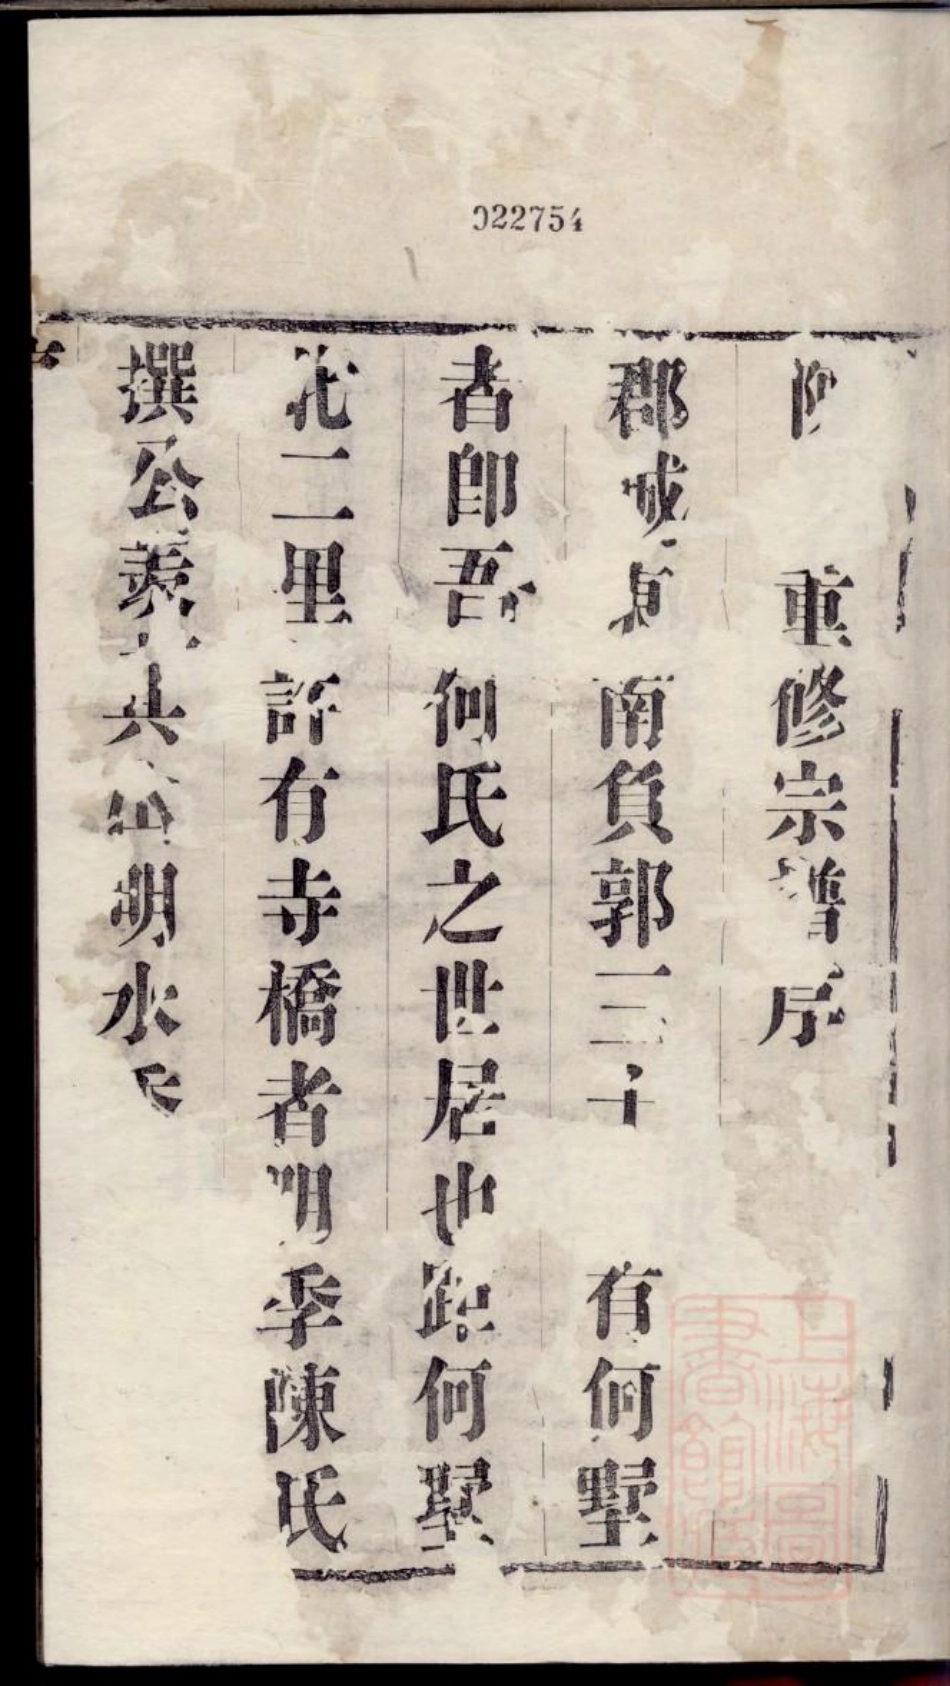 022754
重修宗譜序
郡城東南負郭三十有何墅
者即吾何氏之世居也距何墅
北二里許有寺橋者明季陳氏
撰公義共嵩明水氏
上海圖書館藏